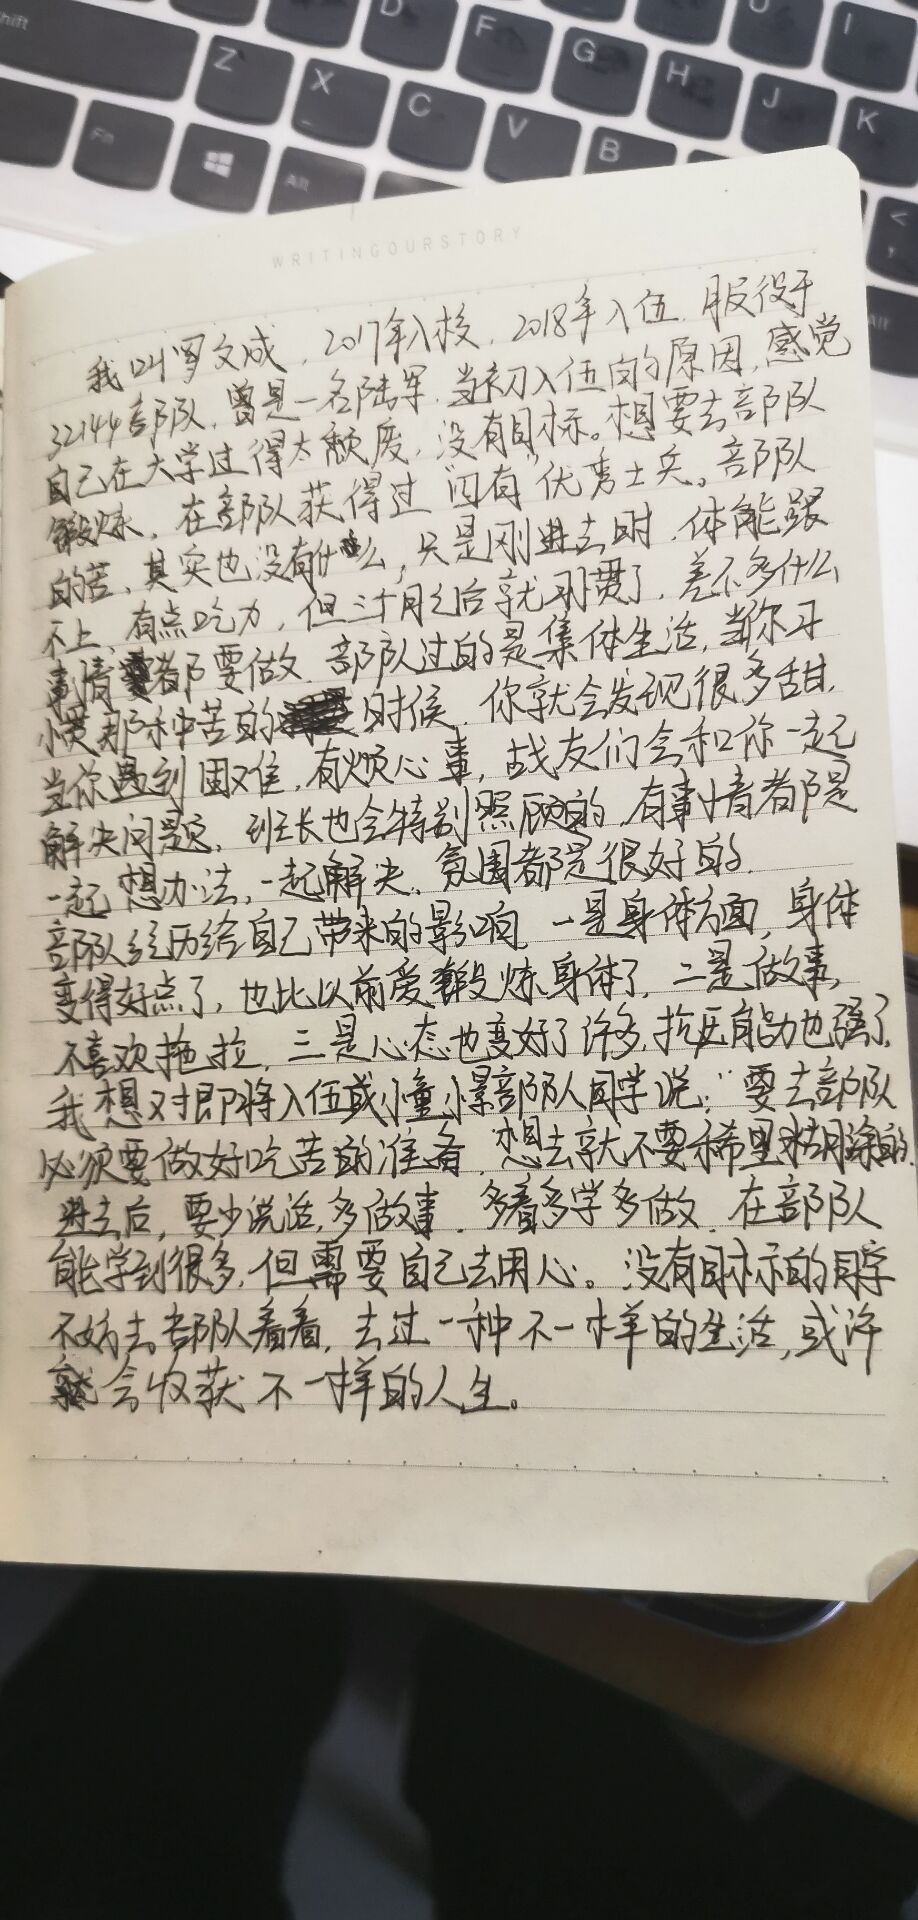 Shift
D
F
G
H
J
K
U
I
Z
X
C
V
B
Fn
Alt
<
,
Alt
WRITINGOURSTORY
我叫罗文成，2017年入校，2018年入伍，服役于
32144部队，曾是一名陆军，当初入伍的原因，感觉
自己在大学过得太颓废，没有目标。想要去部队
锻炼，在部队获得过“四有”优秀士兵。部队
的苦，其实也没有什么，只是刚进去时，体能跟
不上，有点吃力，但三个月之后就习惯了，差不多什么
事情都要做，部队过的是集体生活，当你习
惯那种苦的时候，你就会发现很多甜，
当你遇到困难，有烦心事，战友们会和你一起
解决问题，班长也会特别照顾的，有事情都是
一起想办法，一起解决，氛围都是很好的，
部队经历给自己带来的影响，一是身体方面，身体
变得好点了，也比以前爱锻炼身体了，二是做事，
不喜欢拖拉，三是心态也变好了许多，抗压能力也强了，
我想对即将入伍或憧憬部队同学说：“要去部队
必须要做好吃苦的准备，想去就不要稀里糊涂的，
进去后，要少说话，多做事，多看多学多做，在部队
能学到很多，但需要自己去用心。没有目标的同学
不妨去部队看看，去过一种不一样的生活，或许
就会收获不一样的人生。